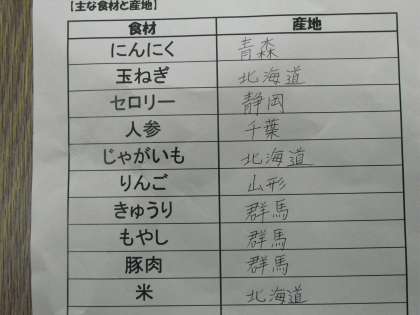 【主な食材と産地】
食材 産地
にんにく 青森
玉ねぎ 北海道
セロリー 静岡
人参 千葉
じゃがいも 北海道
りんご 山形
きゅうり 群馬
もやし 群馬
豚肉 群馬
米 北海道